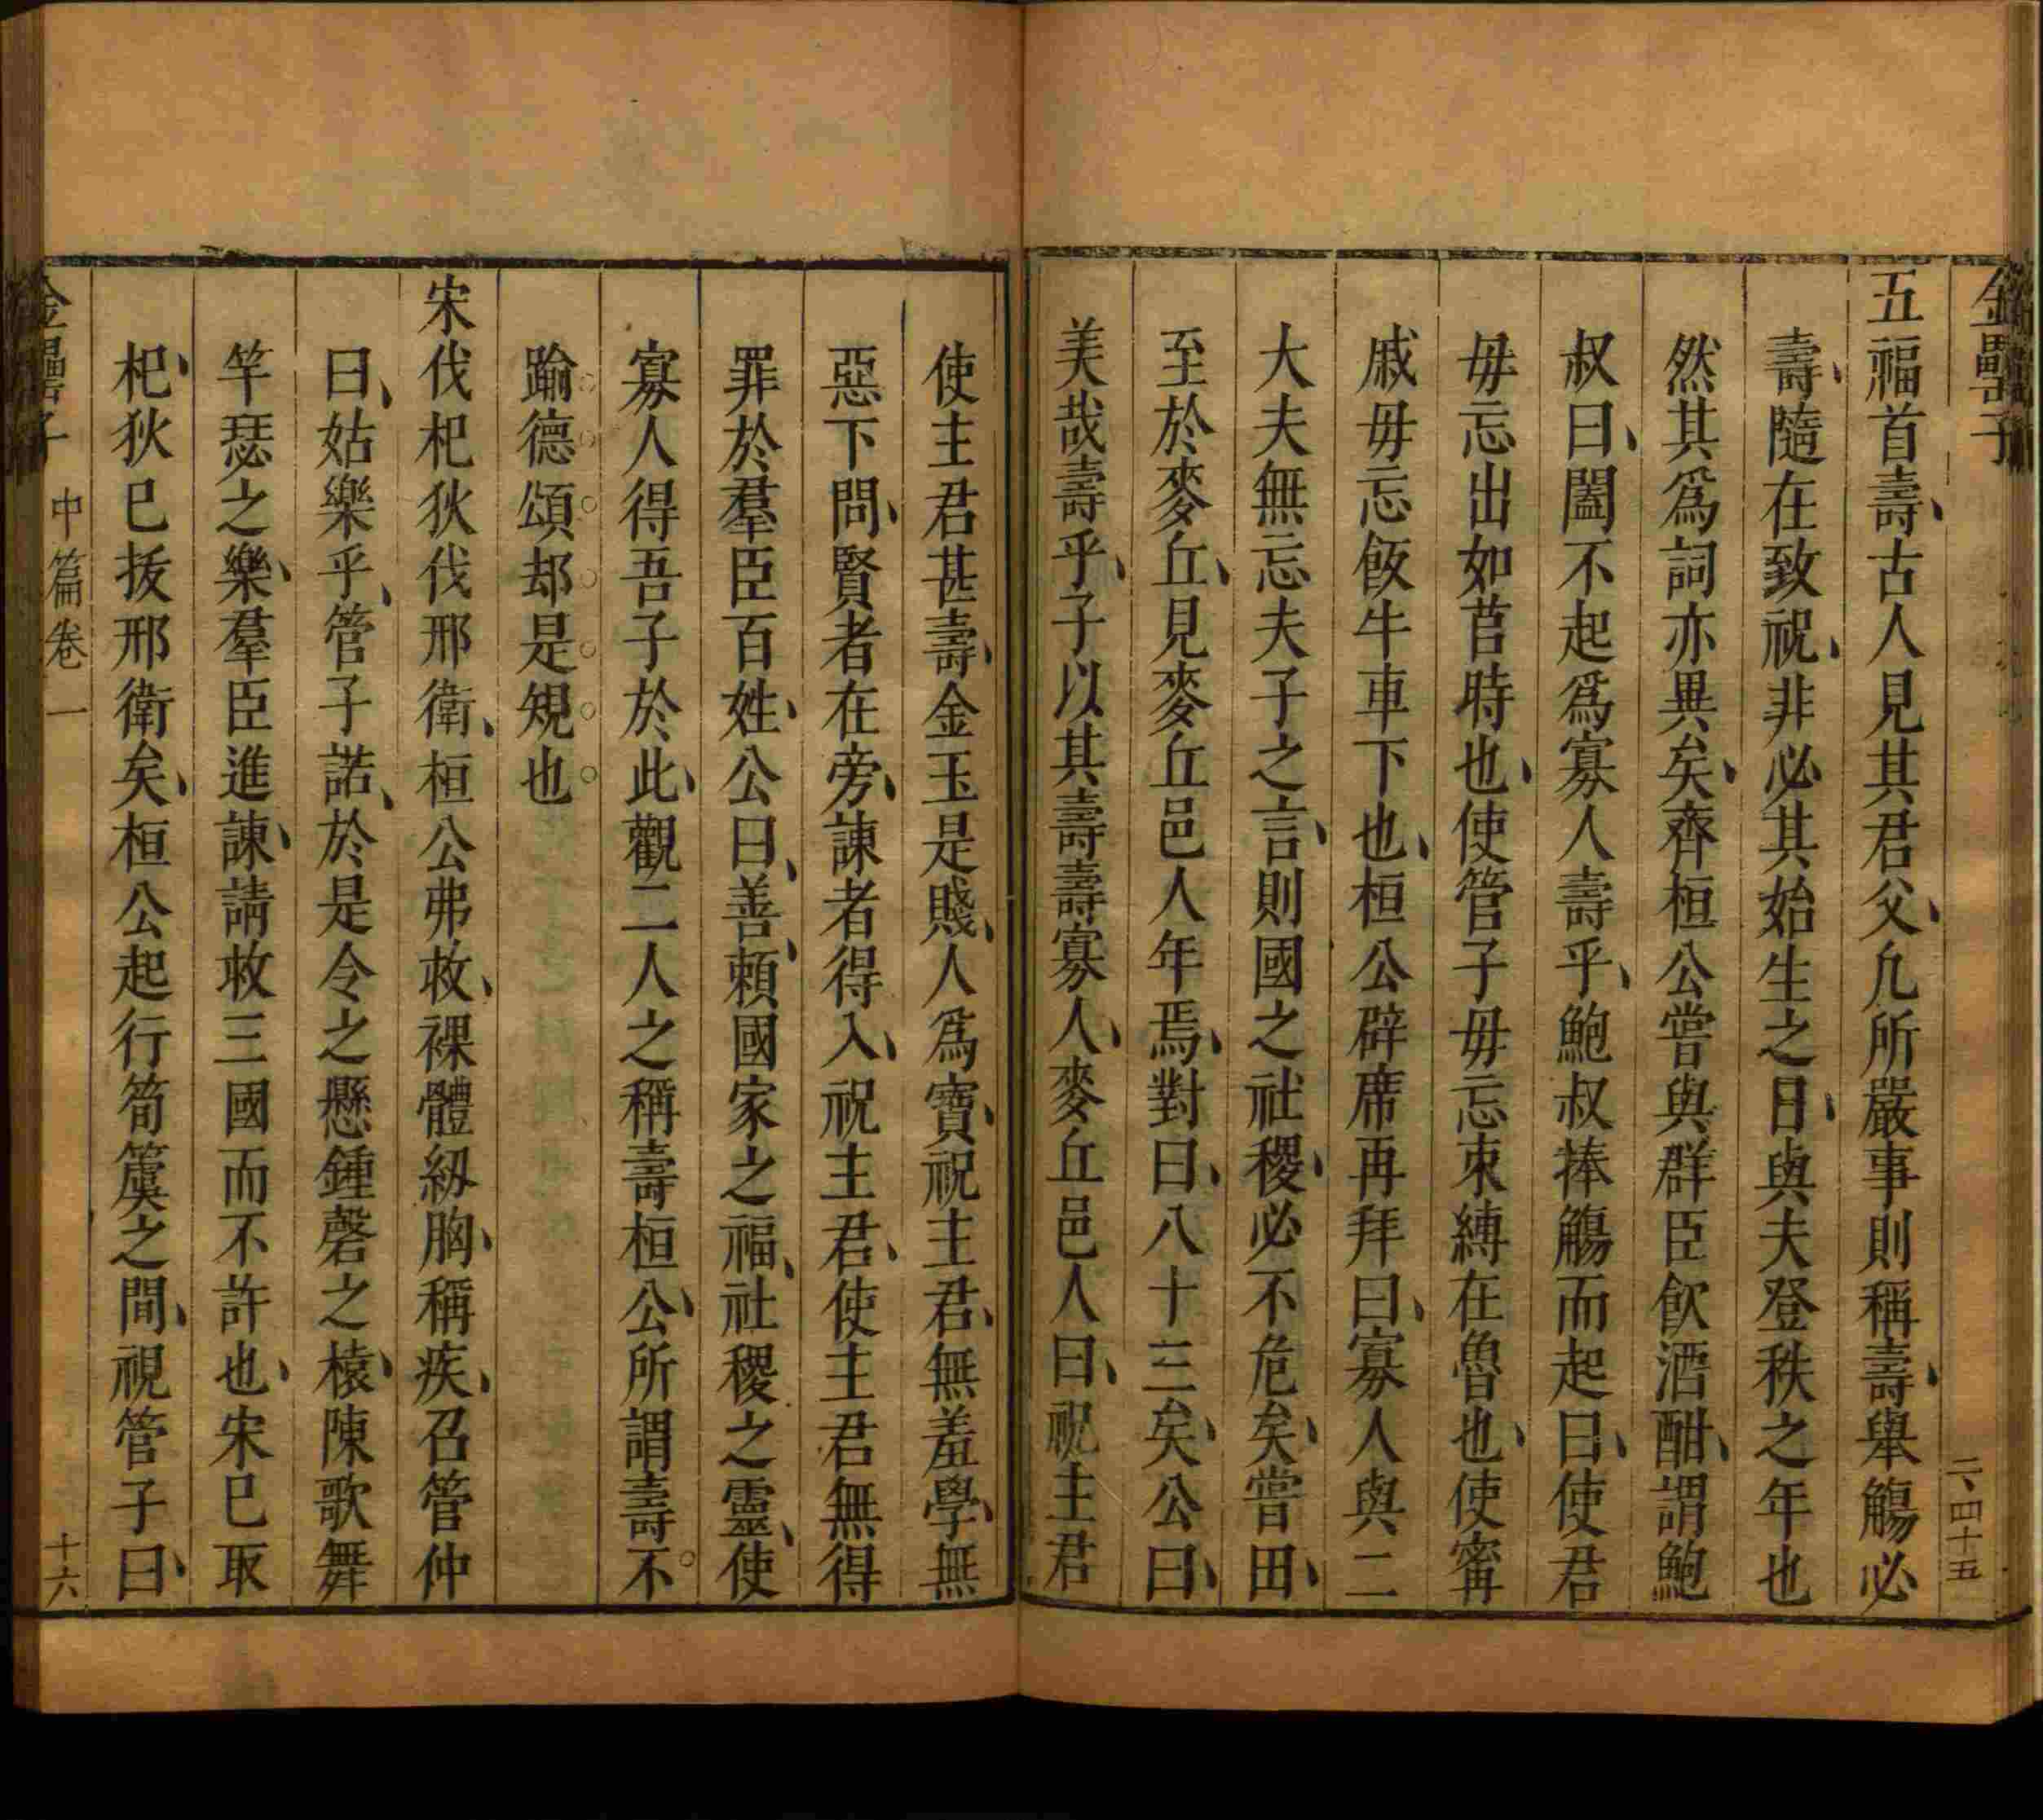 金罍子
二、四十五
五福首壽、古人見其君父、凢所嚴事則稱壽、舉觴必
壽、隨在致祝、非必其始生之日、與夫登秩之年也
然其爲詞亦異矣、齊桓公嘗與群臣飲酒酣、謂鮑
叔曰、闔不起爲寡人壽乎、鮑叔捧觴而起曰、使君
毋忘出如莒時也、使管子毋忘朿縛在魯也、使甯
戚毋忘飯牛車下也、桓公辟席再拜曰、寡人與二
大夫無忘夫子之言、則國之社稷、必不危矣、嘗田、
至於麥丘、見麥丘邑人年焉、對曰、八十三矣、公曰、
美哉壽乎、子以其壽壽寡人、麥丘邑人曰、祝主君
使主君甚壽、金玉是賤、人爲寶、祝主君、無羞學、無
惡下問、賢者在旁、諫者得入、祝主君、使主君無得
罪於羣臣百姓、公曰、善、賴國家之福、社稷之靈、使
寡人得吾子於此、觀二人之稱壽桓公、所謂壽不
踰德頌却是䂓也
宋伐杞狄伐邢衛、桓公弗救、裸體紉胸、稱疾、召管仲
曰、姑樂乎、管子諾、於是令之懸鍾磬之榬、陳歌舞
竽瑟之樂、羣臣進諫、請救三國而不許也、宋已取
杞、狄已拔邢衛矣、桓公起行筍簴之間、視管子曰、
金罍子
中篇卷一
十六